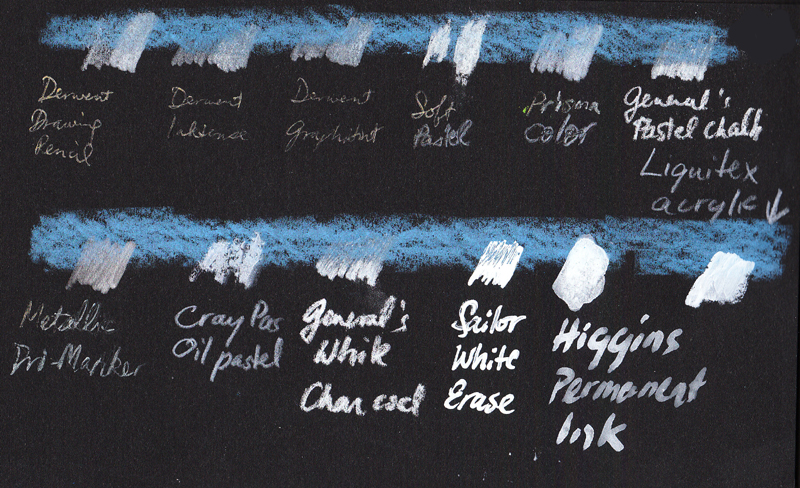 Derwent
Drawing
Pencil
Derwent
Inktense
Derwent
Graphitint
Soft
Pastel
Prisma
color
General's
Pastel Chalk
Liquitex
acrylic
Metallic
Dri-Marker
Cray Pas
Oil pastel
General's
White
Charcoal
Sailor
White
Erase
Higgins
Permanent
Ink